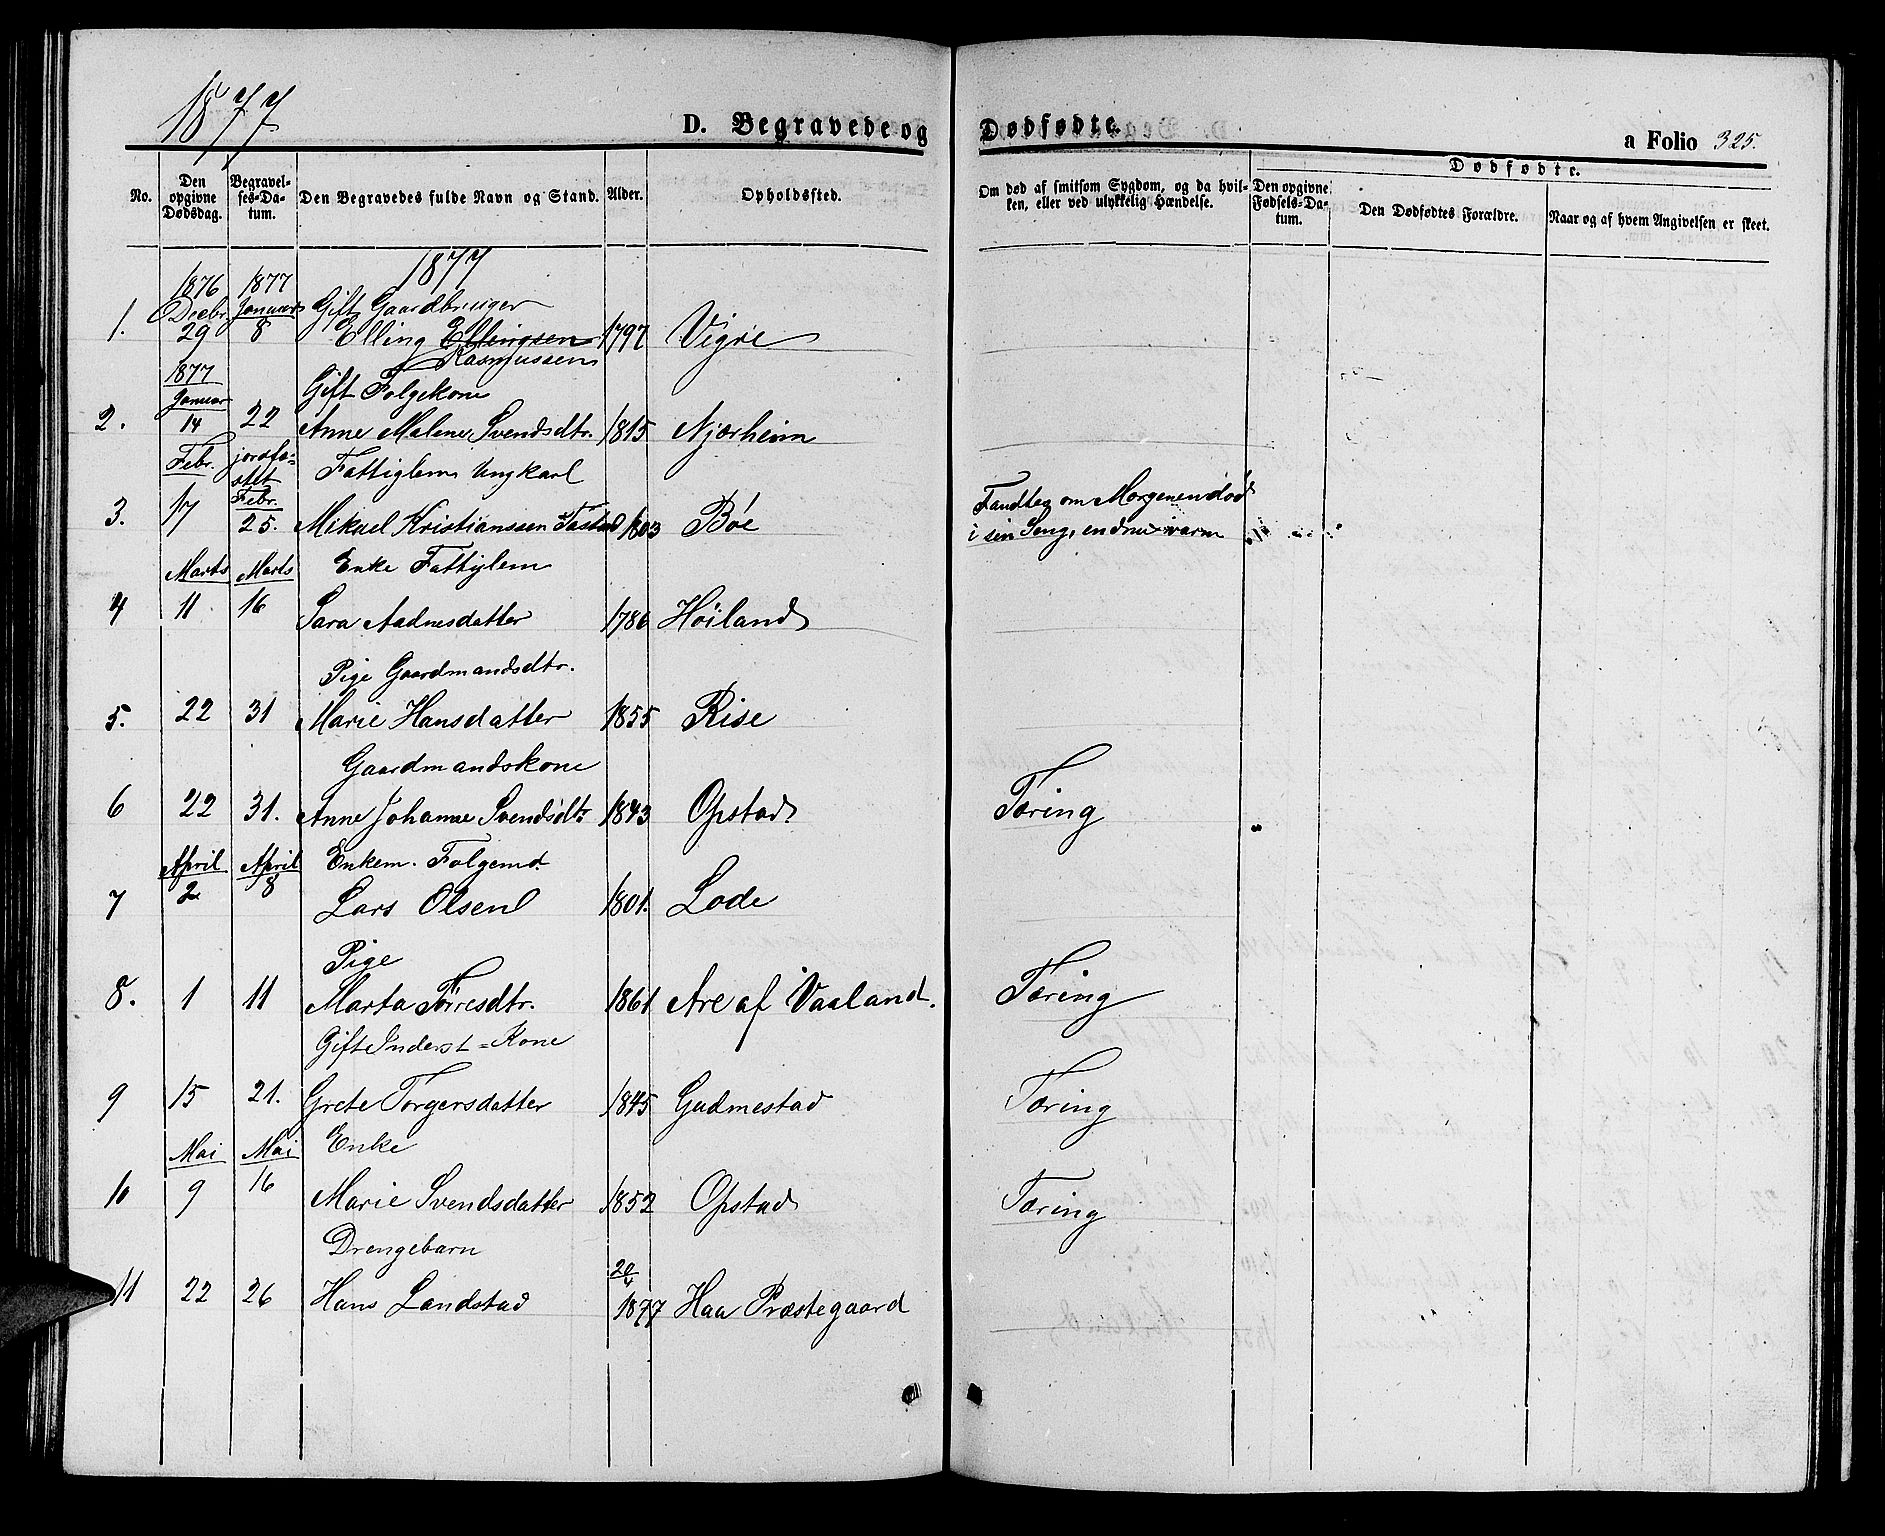 1877
D. Begravede og Dødfødte.
a Folio 325.
No.
Den opgivne Dødsdag.
Begravelses-Datum.
Den Begravedes fulde Navn og Stand.
Alder.
Opholdssted.
Om død af smitsom Sygdom, og da hvilken, eller ved ulykkelig Hændelse.
Dødfødte.
Den opgivne Fødsels-Datum.
Den Dødfødtes Forældre.
Naar og af hvem Angivelsen er skeet.
1876 1877 1877
Decbr. Januar Gift Gaardbruger
1. 29 8 Elling Ellingsen 1797 Vigre
Rasmussen
1877
Januar Gift Folgekone
2. 14 22 Anne Malene Svendsdtr. 1815 Njærheim
Febr. jordfæstet Febr. Fattiglem Ungkarl
3. 17 25. Mikael Kristianssen Tastad 1803 Bøe Fandtes om Morgenen død
i sin Seng, endnu varm
Marts Marts Enke Fattiglem
4 11 16 Sara Aadnesdatter 1786 Høiland
Pige Gaardmandsdtr.
5. 22 31 Marie Hansdatter 1855 Rise
Gaardmandskone
6 22 31. Anne Johanne Svendsdtr 1843 Opstad Tæring
April April Enkem. Folgemd.
7 2 8 Lars Olsen 1801. Lode
Pige
8. 1 11 Marta Tørresdtr. 1861 Are af Vaaland. Tæring
Gift Inderst=Kone
9 15 21. Grete Torgersdatter 1845 Gudmestad Tæring
Mai Mai Enke
10 9 16 Marie Svendsdatter 1852 Opstad Tæring
Drengebarn 20/4
11 22 26 Hans Landstad 1877 Haa Præstegaard